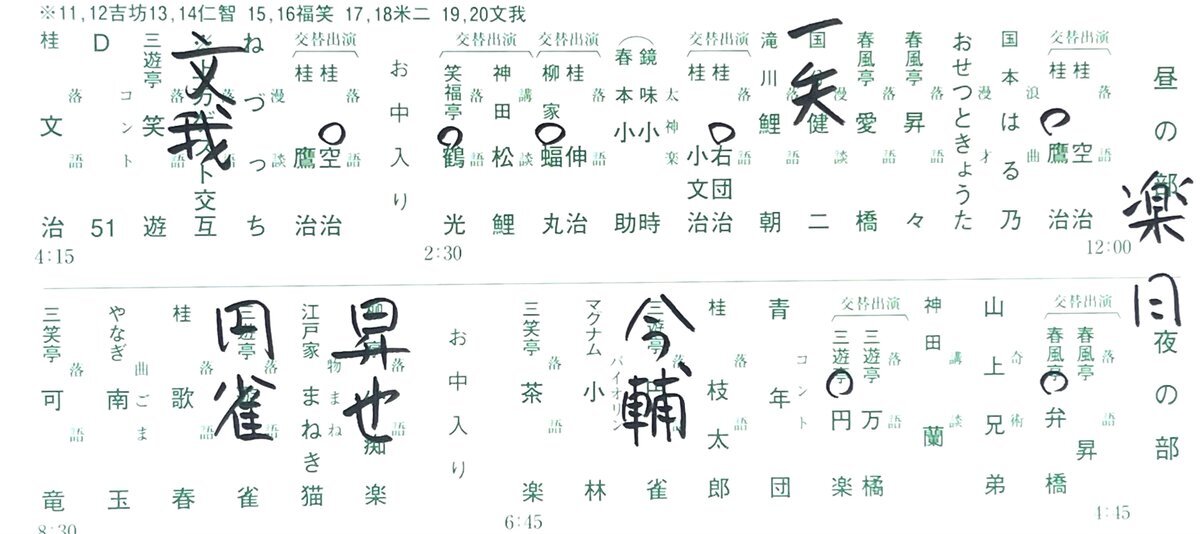 ※11,12吉坊13,14仁智 15,16福笑 17,18米二 19,20文我
昼の部
楽
12:00
交替出演
落語
桂 空治
桂 鷹治
浪曲
国本はる乃
漫才
おせつときょうた
落語
春風亭昇々
落語
春風亭愛橋
漫談
一矢
国 健二
落語
滝川鯉朝
交替出演
落語
桂 右団治
桂 小文治
太神楽
鏡味小時
春本小助
交替出演
落語
桂 伸治
柳家蝠丸
交替出演
講談
神田松鯉
落語
笑福亭鶴光
2:30
お中入り
交替出演
落語
桂 空治
桂 鷹治
漫談
ねづっち
落語
文我
交互
落語
三遊亭笑遊
コント
D51
落語
桂 文治
4:15
夜の部
4:45
交替出演
落語
春風亭 昇
春風亭弁橋
奇術
山上兄弟
講談
神田 蘭
交替出演
落語
三遊亭万橘
三遊亭円楽
コント
青年団
落語
桂 枝太郎
今輔
三遊亭 雀
バイオリン
マグナム小林
落語
三笑亭茶楽
6:45
お中入り
昇也
落語
痴楽
物まね
江戸家まねき猫
円雀
三遊亭 雀
落語
桂 歌春
曲ごま
やなぎ南玉
落語
三笑亭可竜
8:30